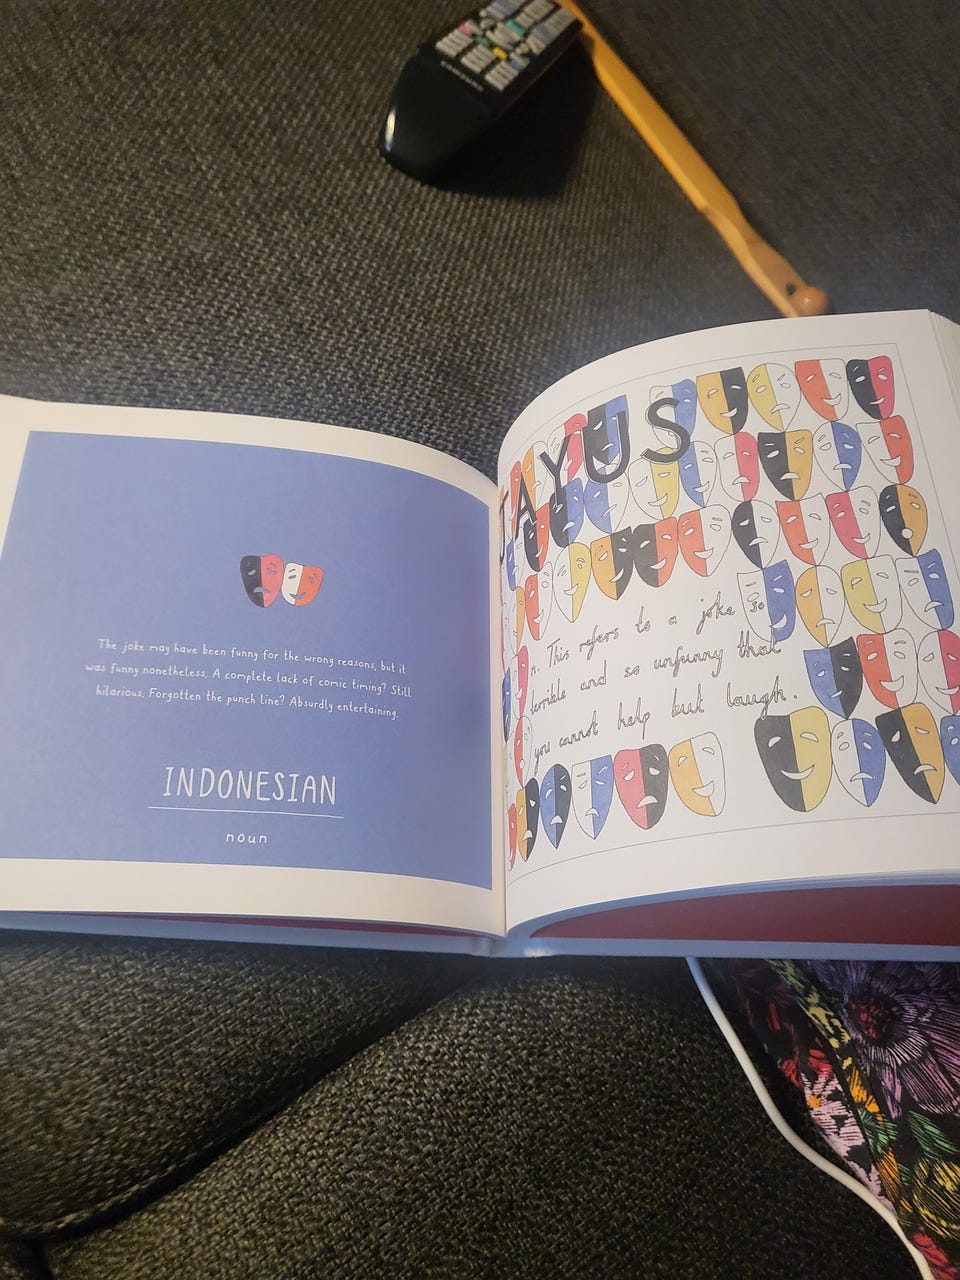 The joke may have been funny for the wrong reasons, but it
was funny nonetheless. A complete lack of comic timing? Still
hilarious. Forgotten the punch line? Absurdly entertaining.
INDONESIAN
noun
JAYUS
n. This refers to a joke so
terrible and so unfunny that
you cannot help but laugh.
SAMSUNG